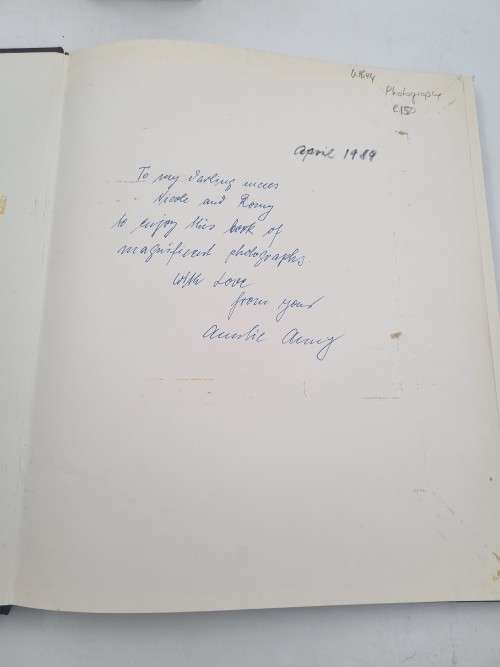 Photography
£150
April 1989
To my darling nieces
Nicole and Romy
to enjoy this book of
magnificent photographs.
With Love
from your
Auntie